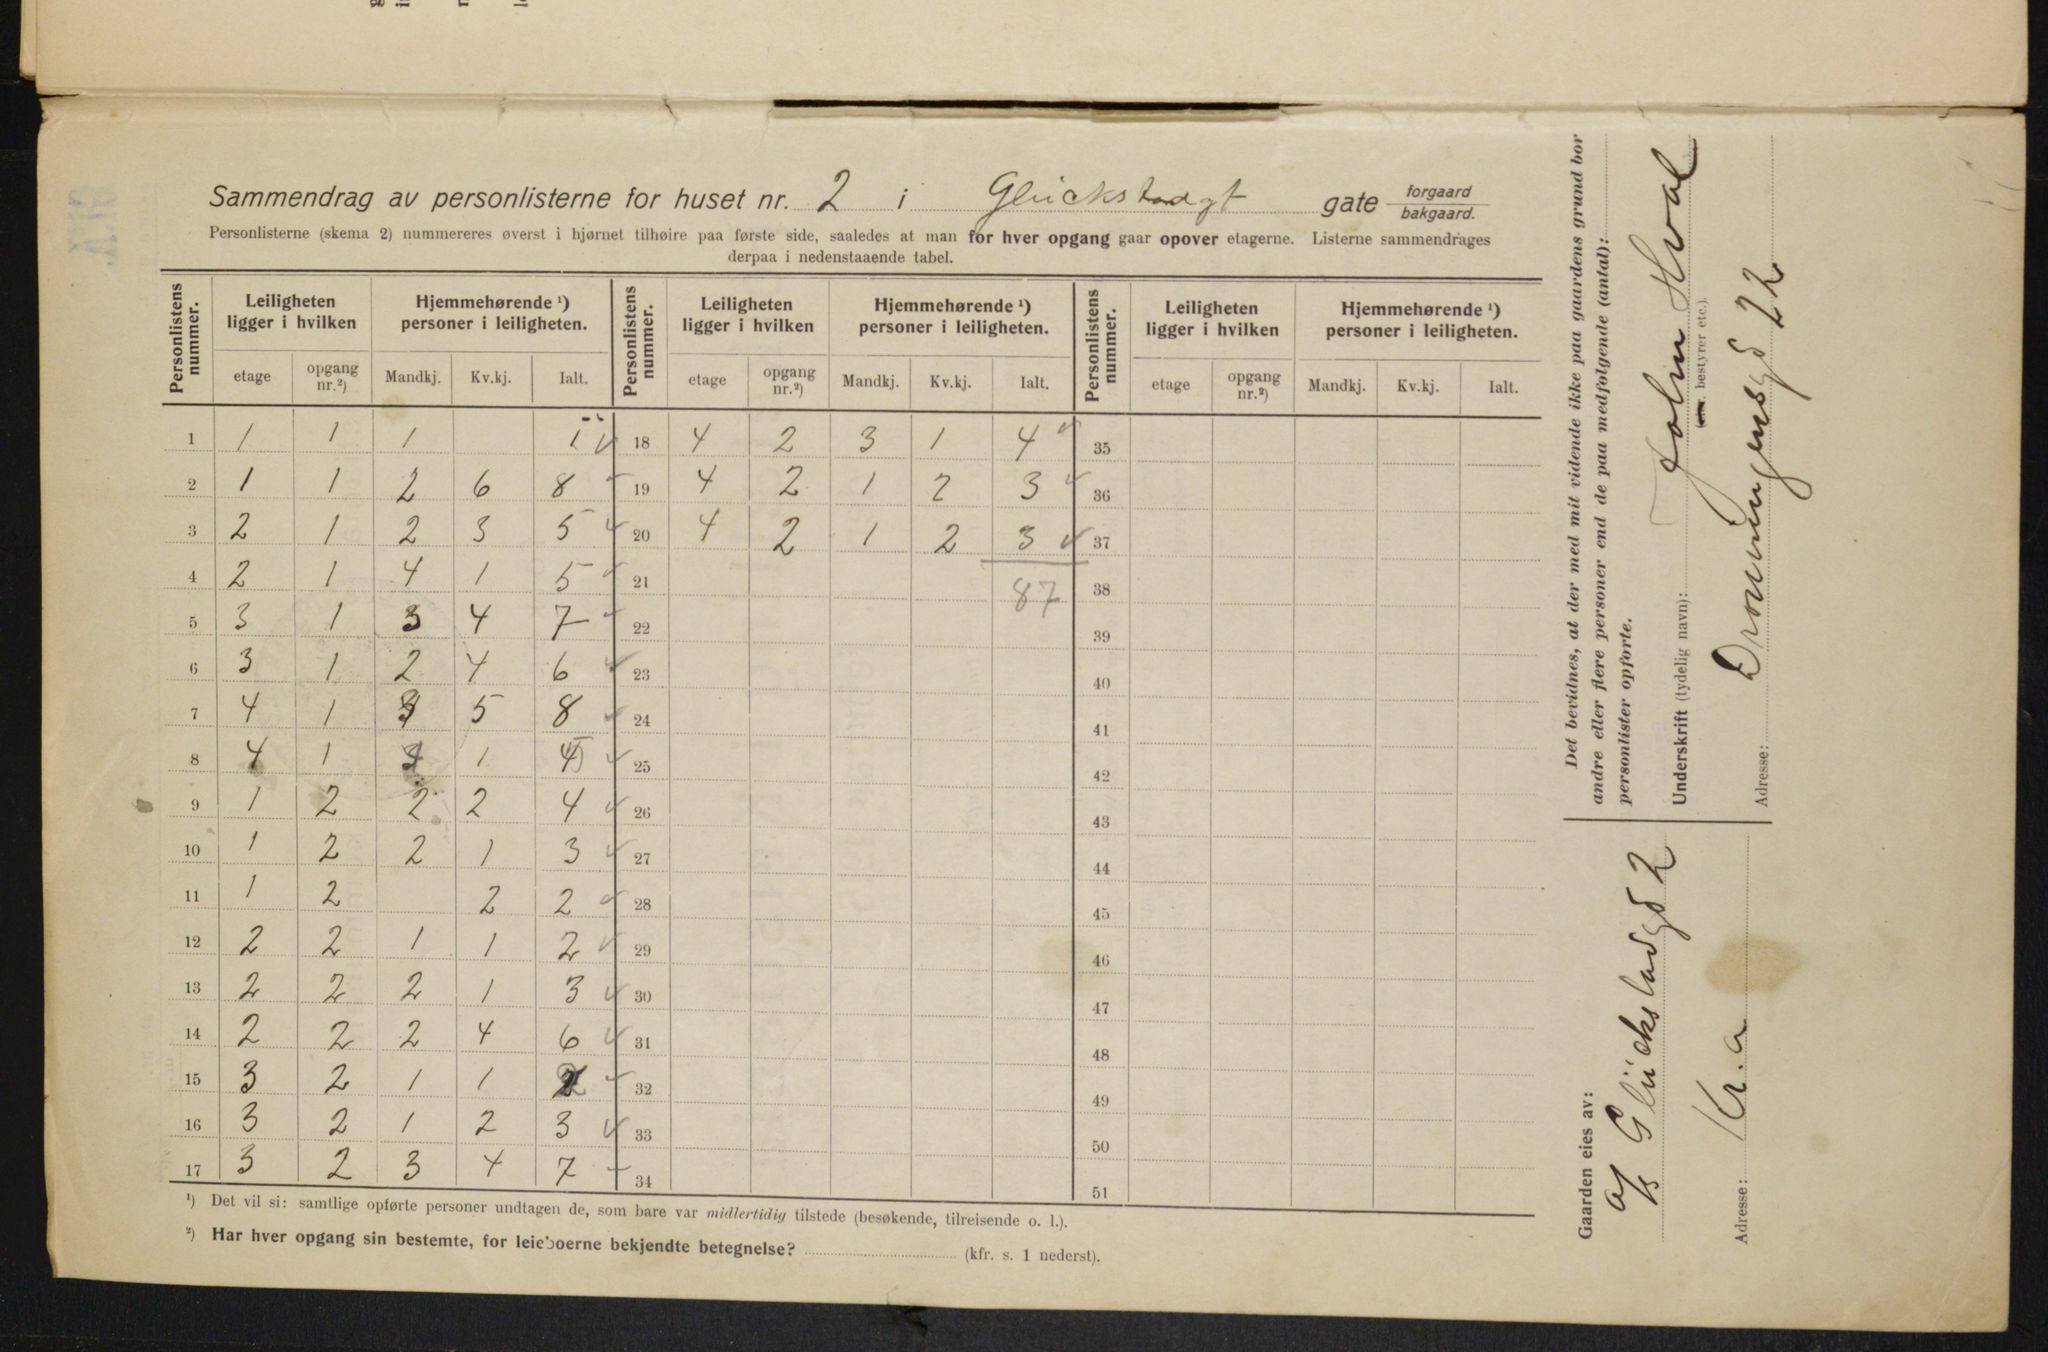 Sammendrag av personlisterne for huset nr. 2 i Glückstadgt gate forgaard bakgaard.
Personlisterne (skema 2) nummereres øverst i hjørnet tilhøire paa første side, saaledes at man for hver opgang gaar opover etagerne. Listerne sammendrages
derpaa i nedenstaaende tabel.
Personlistens nummer. Leiligheten ligger i hvilken Hjemmehørende ¹) personer i leiligheten. Personlistens nummer. Leiligheten ligger i hvilken Hjemmehørende ¹) personer i leiligheten. Personlistens nummer. Leiligheten ligger i hvilken Hjemmehørende ¹) personer i leiligheten.
etage opgang nr.²) Mandkj. Kv.kj. Ialt. etage opgang nr.²) Mandkj. Kv.kj. Ialt. etage opgang nr.²) Mandkj. Kv.kj. Ialt.
1 1 1 1 1 18 4 2 3 1 4 35
2 1 1 2 6 8 19 4 2 1 2 3 36
3 2 1 2 3 5 20 4 2 1 2 3 37
4 2 1 4 1 5 21 87 38
5 3 1 3 4 7 22 39
6 3 1 2 4 6 23 40
7 4 1 3 5 8 24 41
8 4 1 1 25 42
9 1 2 2 2 4 26 43
10 1 2 2 1 3 27 44
11 1 2 2 2 28 45
12 2 2 1 1 2 29 46
13 2 2 2 1 3 30 47
14 2 2 2 4 6 31 48
15 3 2 1 1 2 32 49
16 3 2 1 2 3 33 50
17 3 2 3 4 7 34 51
¹) Det vil si: samtlige opførte personer undtagen de, som bare var midlertidig tilstede (besøkende, tilreisende o. l.).
²) Har hver opgang sin bestemte, for leieboerne bekjendte betegnelse? (kfr. s. 1 nederst).
Det bevidnes, at der med mit vidende ikke paa gaardens grund bor
andre eller flere personer end de paa medfølgende (antal):
personlister opførte.
Underskrift (tydelig navn): John Hval
bestyrer etc.).
Adresse: Dronningensgd 22
Gaarden eies av:
A/S Glückstadgd 2
Adresse: Kr.a